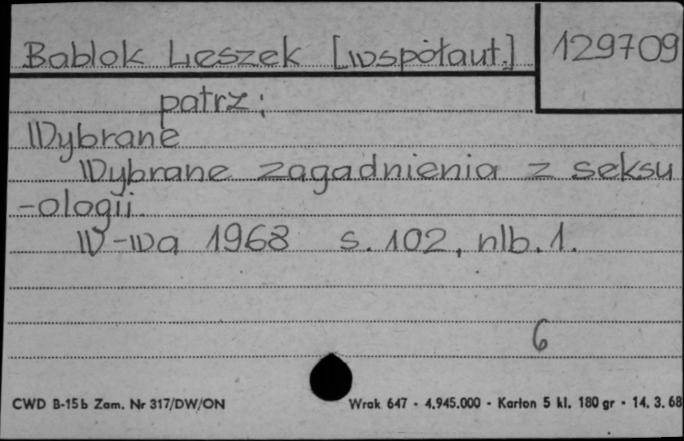 Bablok Leszek [współaut.] 129709
patrz:
Wybrane
Wybrane zagadnienia z seksu
-ologii.
W-wa 1968 s. 102, nlb. 1.
6
CWD B-15b Zam. Nr 317/DW/ON Wrak 647 - 4.945.000 - Karton 5 kl. 180 gr - 14. 3. 68